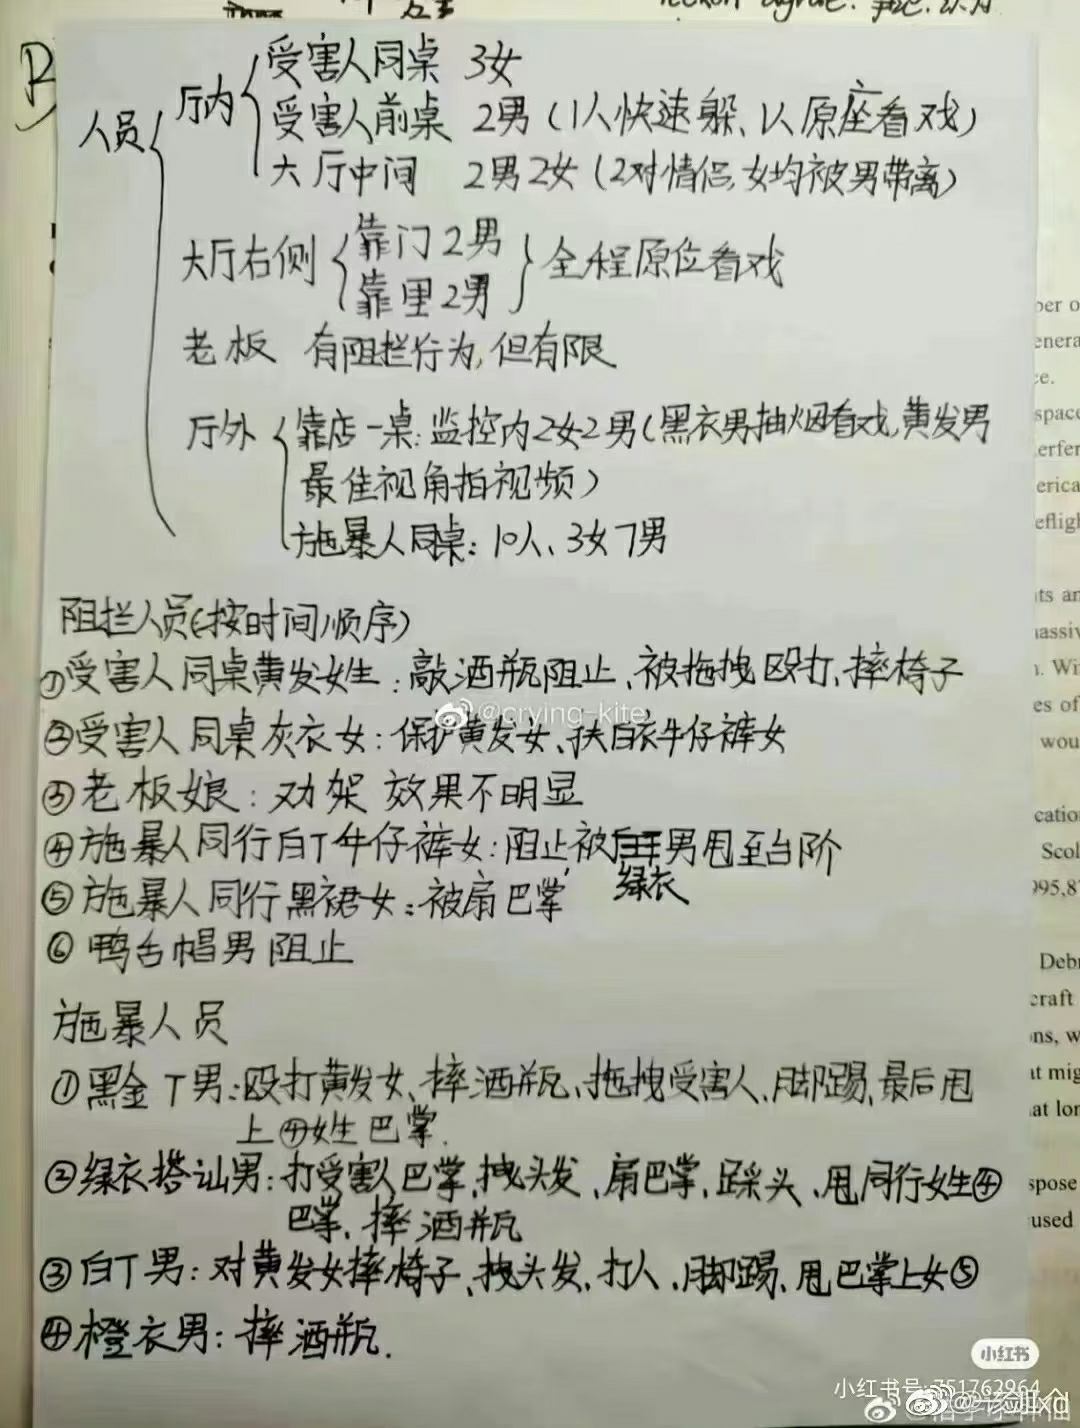 人员
厅内
受害人同桌 3女
受害人前桌 2男(1人快速躲、1人原座看戏)
大厅中间 2男2女(2对情侣,女均被男带离)
大厅右侧
靠门2男
靠里2男
全程原位看戏
老板 有阻拦行为,但有限
厅外
靠店一桌:监控内2女2男(黑衣男抽烟看戏,黄发男
最佳视角拍视频)
施暴人同桌:10人、3女7男
阻拦人员(按时间顺序)
①受害人同桌黄发女生:敲酒瓶阻止、被拖拽殴打、摔椅子
@crying-kite
②受害人同桌灰衣女:保护黄发女、扶白衣牛仔裤女
③老板娘:劝架 效果不明显
④施暴人同行白T牛仔裤女:阻止,被男甩至台阶
绿衣
⑤施暴人同行黑裙女:被扇巴掌
⑥鸭舌帽男阻止
施暴人员
①黑金T男:殴打黄发女、摔酒瓶、拖拽受害人、脚踢、最后甩
上④女生巴掌.
②绿衣搭讪男:打受害人巴掌、拽头发、扇巴掌、踩头、甩同行女生④
巴掌、摔酒瓶
③白T男:对黄发女摔椅子、拽头发、打人、脚踢、甩巴掌上女⑤
④橙衣男:摔酒瓶.
小红书
小红书号:751762964
ber o
enera
ce.
space
erfer
erica
eflig
ts an
assiv
. Wi
es of
wou
catio
Scol
995,8
Debr
craft
ns, w
at mig
at lor
spose
used